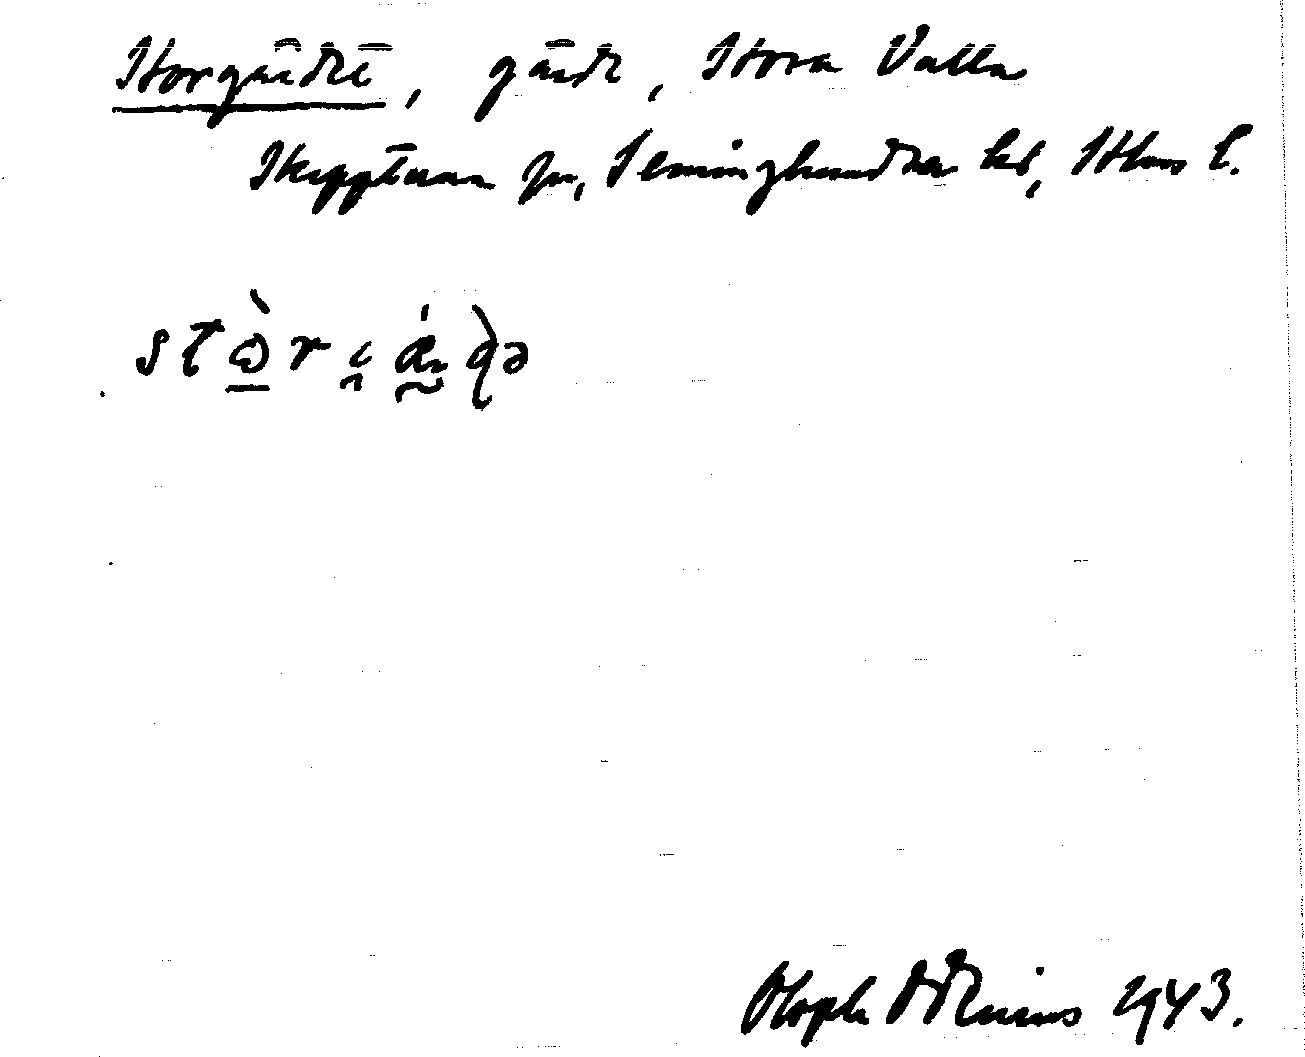 Storgärdet, gärde, Stora Valla
Skepptuna sn, Seminghundra hd, Sthms l.
Oloph Odenius 1943.